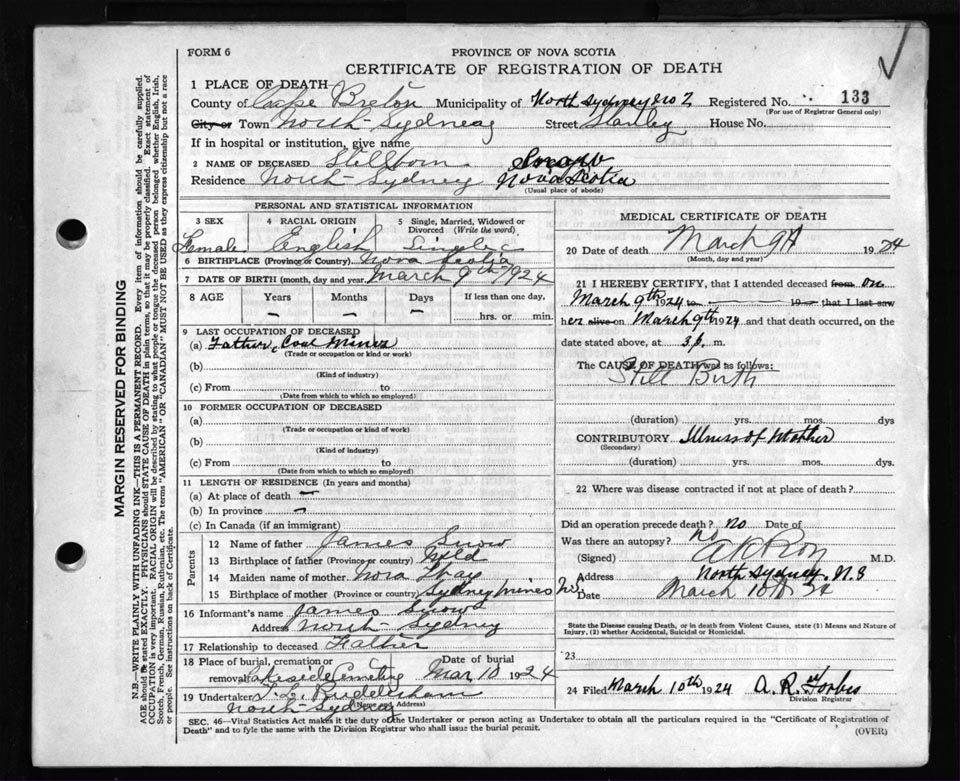 FORM 6
PROVINCE OF NOVA SCOTIA
CERTIFICATE OF REGISTRATION OF DEATH
1 PLACE OF DEATH
County of Cape Breton Municipality of North Sydney No 2 Registered No. 133
(For use of Registrar General only)
City or Town North Sydney Street Stanley House No.
If in hospital or institution, give name
2 NAME OF DECEASED Stillborn Snow
Residence North Sydney Nova Scotia
(Usual place of abode)
PERSONAL AND STATISTICAL INFORMATION
3 SEX 4 RACIAL ORIGIN 5 Single, Married, Widowed or Divorced (Write the word)
Female English Single
6 BIRTHPLACE (Province or Country) Nova Scotia
7 DATE OF BIRTH (month, day and year) March 9th 1924
8 AGE Years Months Days If less than one day,
— — — hrs. or min.
9 LAST OCCUPATION OF DECEASED
(a) Father, Coal Miner
(Trade or occupation or kind or work)
(b)
(Kind of industry)
(c) From to
(Date from which to which so employed)
10 FORMER OCCUPATION OF DECEASED
(a)
(Trade or occupation or kind of work)
(b)
(Kind of industry)
(c) From to
(Date from which to which so employed)
11 LENGTH OF RESIDENCE (In years and months)
(a) At place of death —
(b) In province —
(c) In Canada (if an immigrant)
Parents
12 Name of father James Snow
13 Birthplace of father (Province or country) Nfld
14 Maiden name of mother Nora
15 Birthplace of mother (Province or country) Sydney Mines NS
16 Informant's name James Snow
Address North Sydney
17 Relationship to deceased Father
18 Place of burial, cremation or removal Lakeside Cemetery Date of burial Mar 10 1924
19 Undertaker
(Name and Address)
North Sydney
MEDICAL CERTIFICATE OF DEATH
20 Date of death March 9th 1924
(Month, day and year)
21 I HEREBY CERTIFY, that I attended deceased from on
March 9th 1924 to 19 that I last saw
her alive on March 9th 1924 and that death occurred, on the
date stated above, at 3 p. m.
The CAUSE OF DEATH was as follows:
Still Birth
(duration) yrs. mos. dys
CONTRIBUTORY Illness of Mother
(Secondary)
(duration) yrs. mos. dys.
22 Where was disease contracted if not at place of death?
Did an operation precede death? no Date of
Was there an autopsy? no
(Signed) M.D.
Address North Sydney, N.S
Date March 10th 24
State the Disease causing Death, or in death from Violent Causes, state (1) Means and Nature of Injury, (2) whether Accidental, Suicidal or Homicidal.
23
24 Filed March 10th 1924 A. R. Forbes
Division Registrar
SEC. 46—Vital Statistics Act makes it the duty of the Undertaker or person acting as Undertaker to obtain all the particulars required in the "Certificate of Registration of
Death" and to fyle the same with the Division Registrar who shall issue the burial permit.
(OVER)
MARGIN RESERVED FOR BINDING
N.B.—WRITE PLAINLY WITH UNFADING INK—THIS IS A PERMANENT RECORD. Every item of information should be carefully supplied.
AGE should be stated EXACTLY. PHYSICIANS should STATE CAUSE OF DEATH in plain terms, so that it may be properly classified. Exact statement of
OCCUPATION is very important. RACIAL ORIGIN will be described by stating to what people or tongue the deceased person belonged whether English, Irish,
Scotch, French, German, Russian, Ruthenian, etc. The terms "AMERICAN" OR "CANADIAN" MUST NOT BE USED as they express citizenship but not a race
or people. See instructions on back of Certificate.